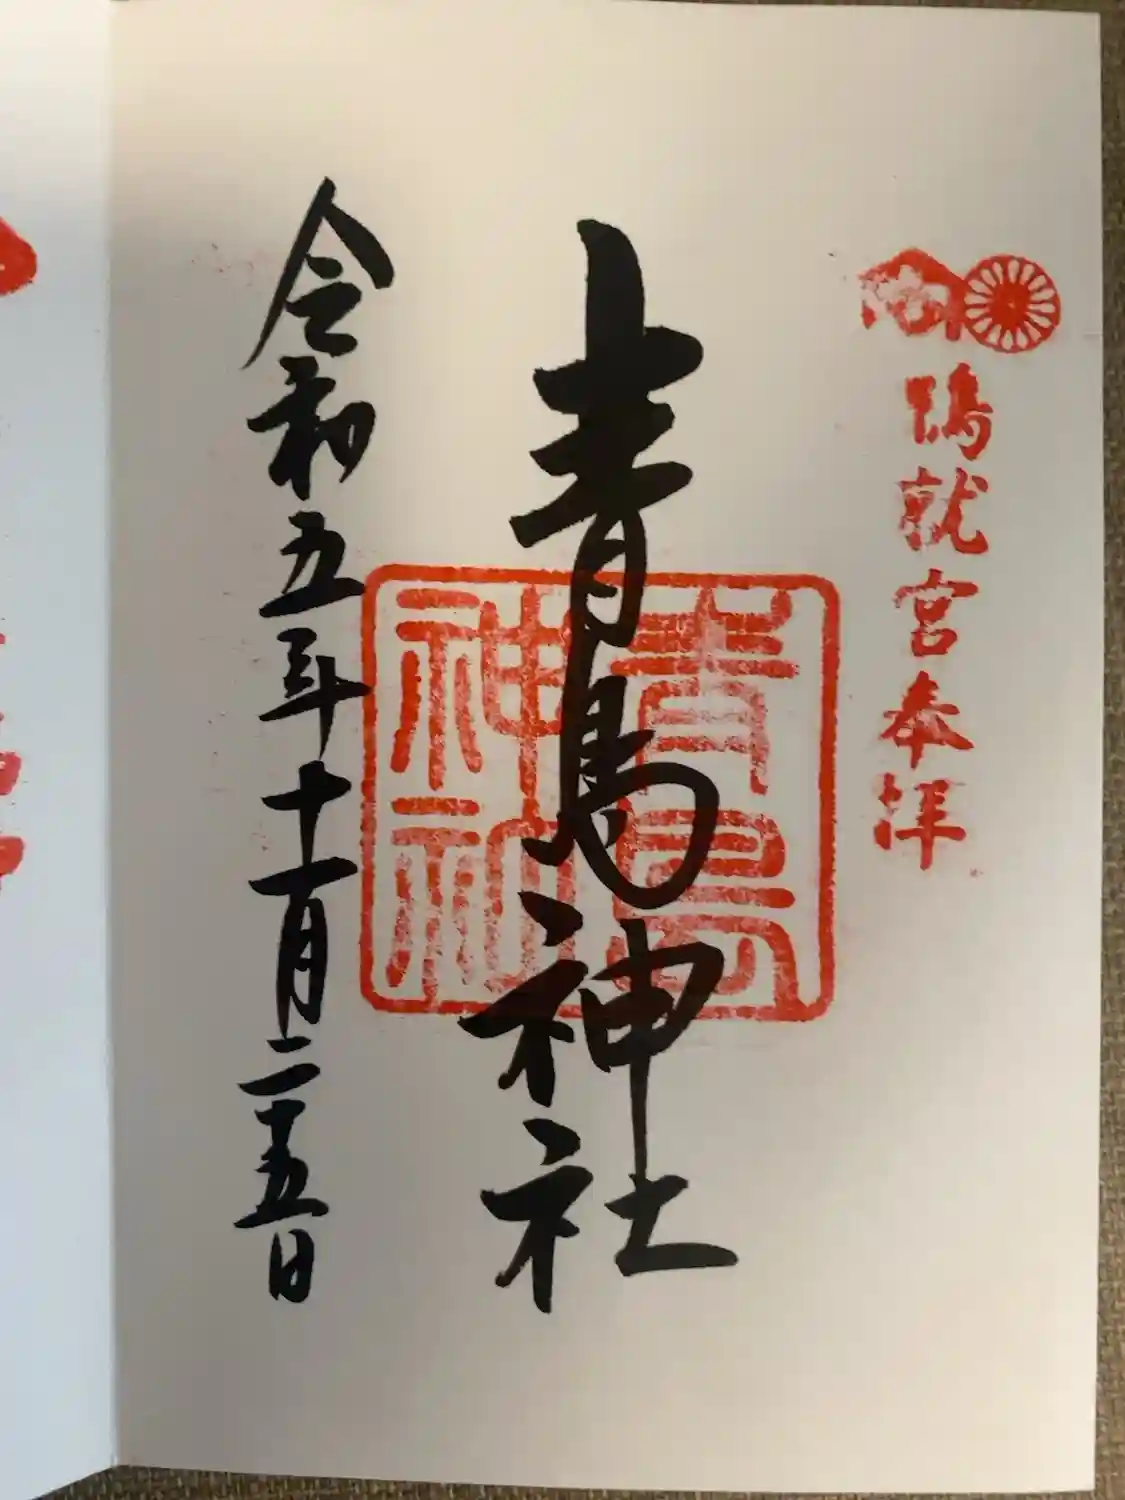 鴨就宮奉拝
青島神社
青島神社
令和五年十一月二十五日